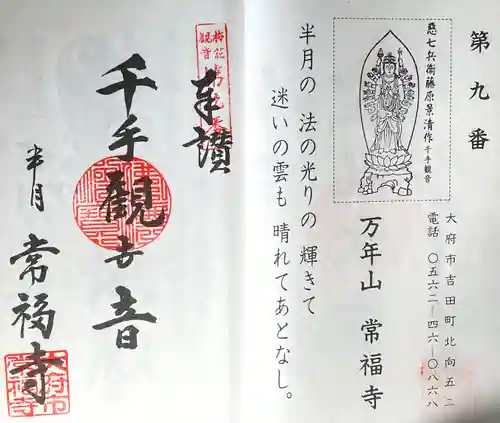 第九番
悪七兵衛藤原景清作 千手観音
大府市吉田町北向五二
電話 〇五六二―四六―〇八六八
万年山 常福寺
半月の 法の光りの 輝きて
迷いの雲も 晴れてあとなし。
奉讃
千手観世音
半月 常福寺
大府市
常福寺